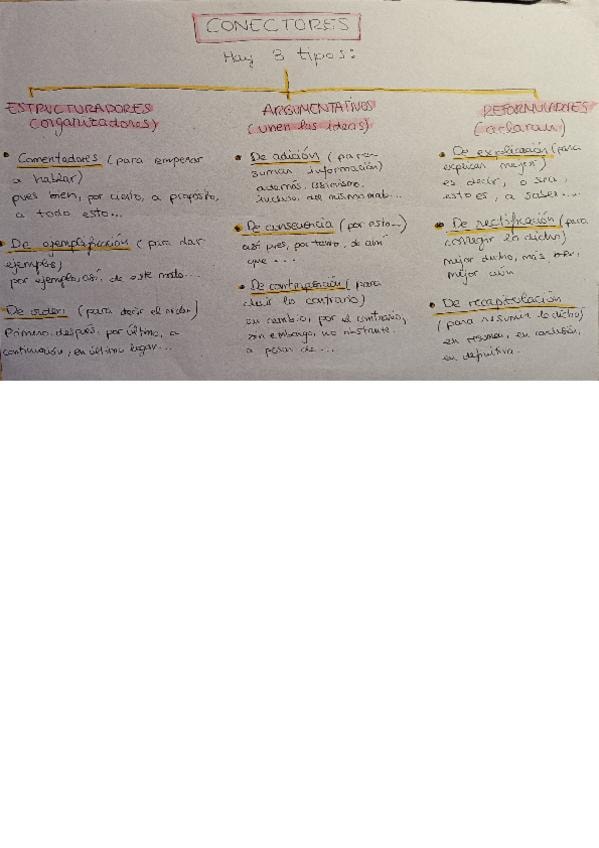 CONECTORES
Hay 3 tipos:
ESTRUCTURADORES
(organizadores)
• Comentadores (para empezar
a hablar)
pues bien, por cierto, a propósito,
a todo esto...
• De ejemplificación (para dar
ejemplos)
por ejemplo, así, de este modo...
De orden (para decir el orden)
Primero, después, por último, a
continuación, en último lugar...
ARGUMENTATIVOS
(unen las ideas)
• De adición (para
sumar información)
además, asimismo,
incluso, del mismo modo...
• De consecuencia (por esto...)
así pues, por tanto, de ahí
que...
• De (para
decir lo contrario)
en cambio, por el contrario,
sin embargo, no obstante,
a pesar de...
REFORMULADORES
(aclaran)
• De explicación (para
explicar mejor)
es decir, o sea,
esto es, a saber...
• De rectificación (para
corregir lo dicho)
mejor dicho, más bien,
mejor aún
• De recapitulación
(para resumir lo dicho)
en resumen, en conclusión,
en definitiva.